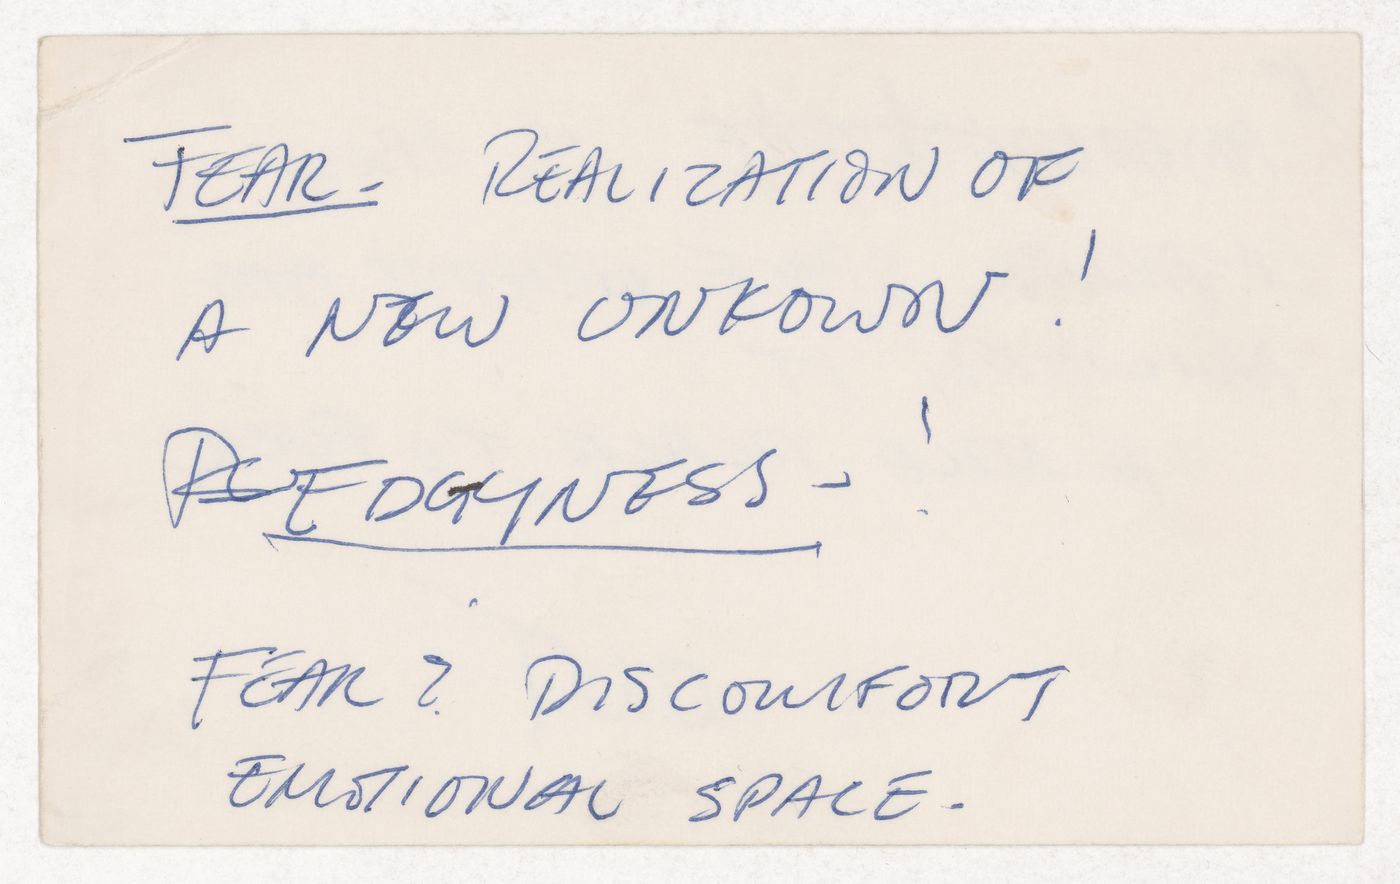 FEAR - REALIZATION OF
A NEW UNKOWN!
EDGYNESS - !
FEAR? DISCOMFORT
EMOTIONAL SPACE.